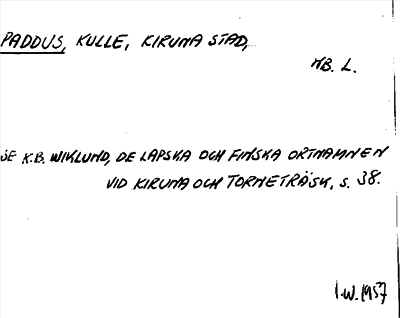 PADDUS, KULLE, KIRUNA STAD,
NB. L.
SE K.B. WIKLUND, DE LAPSKA OCH FINSKA ORTNAMNEN
VID KIRUNA OCH TORNETRÄSK, S. 38.
I.W. 1957